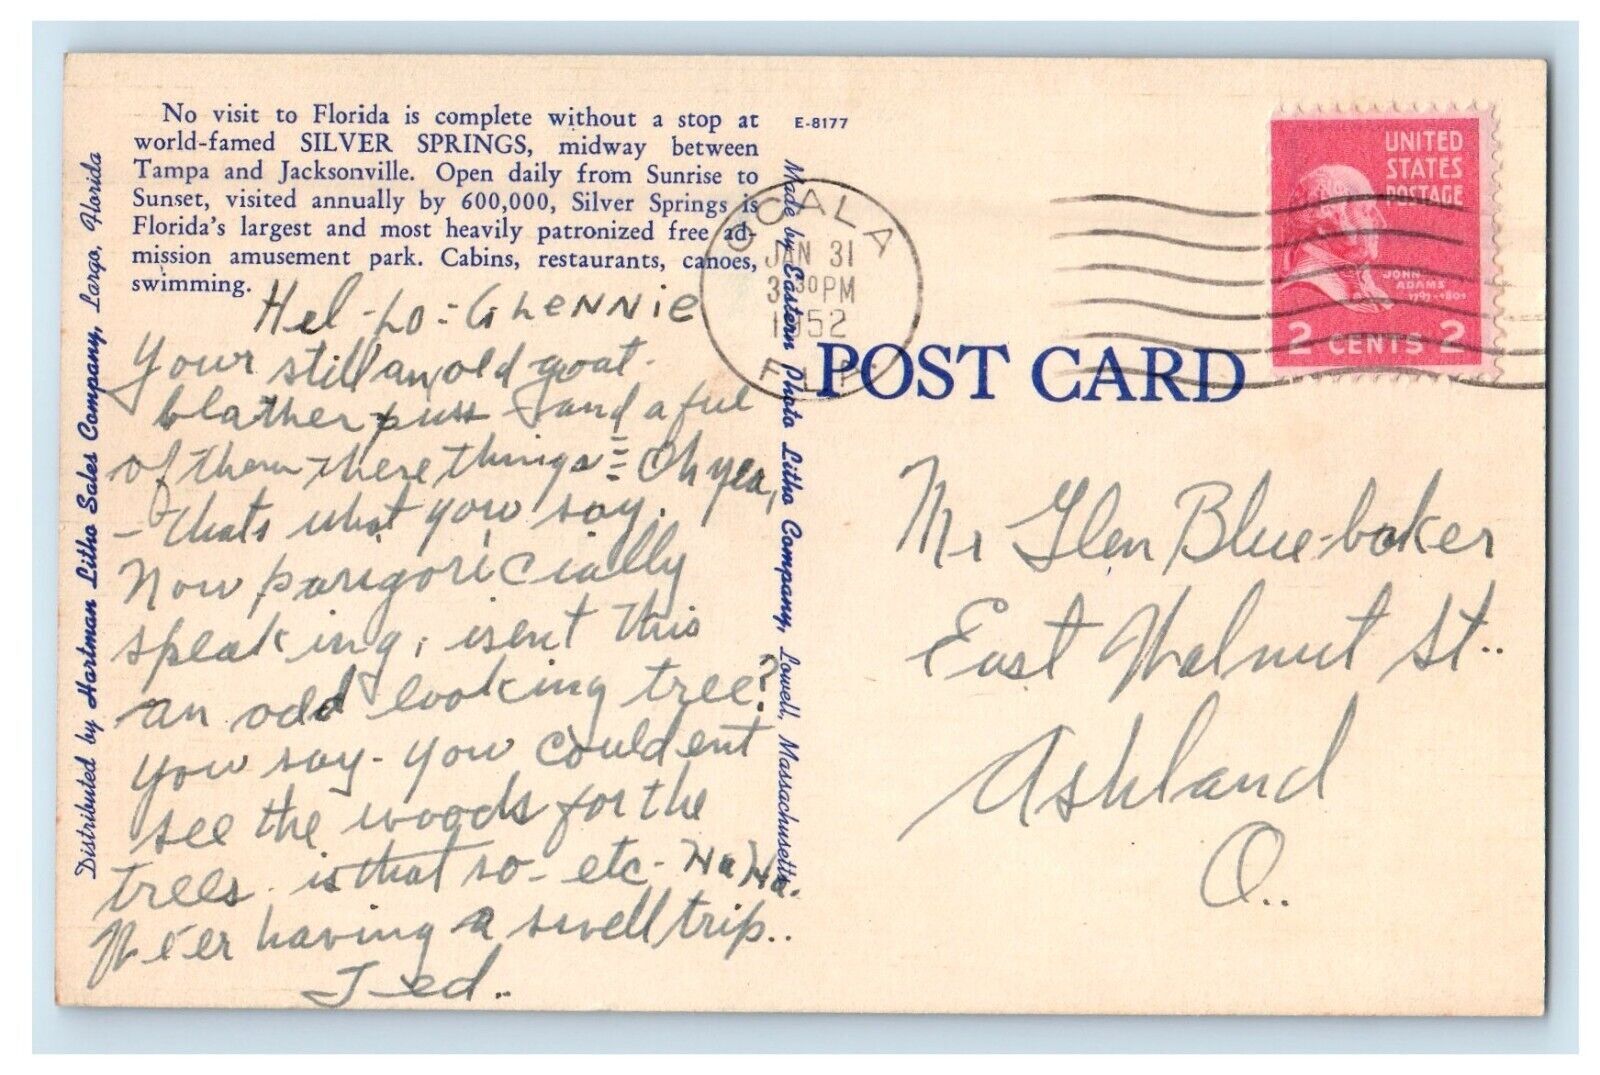 No visit to Florida is complete without a stop at
world-famed SILVER SPRINGS, midway between
Tampa and Jacksonville. Open daily from Sunrise to
Sunset, visited annually by 600,000, Silver Springs is
Florida's largest and most heavily patronized free ad-
mission amusement park. Cabins, restaurants, canoes,
swimming.
Hel-Lo-GLENNIE
Your still an old goat
blather puss and a ful
of them there things Oh yea,
- thats what you say.
Now parigoricially
speaking, isent this
an odd looking tree?
You say - you couldent
see the woods for the
trees. is that so - etc - Ha Ha.
We er having a swell trip..
Ted..
Distributed by Hartman Litho Sales Company, Largo, Florida
E-8177
Made by Eastern Photo Litho Company, Lowell, Massachusetts
OCALA
JAN 31
3 30 PM
1952
FLA.
POST CARD
UNITED
STATES
POSTAGE
JOHN
ADAMS
1797-1801
2 CENTS 2
Mr Glen Blue-baker
East Walnut St..
Ashland
O..